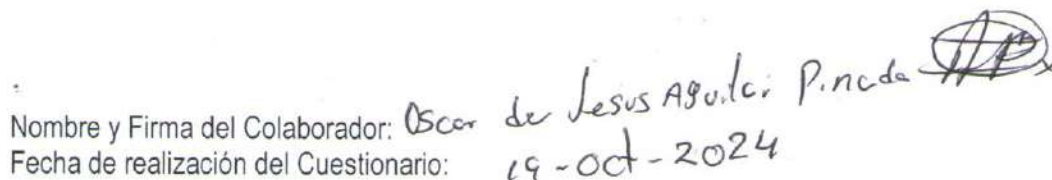 Nombre y Firma del Colaborador: Oscar de Jesus Aguilar Pineda
Fecha de realización del Cuestionario: 19-oct-2024